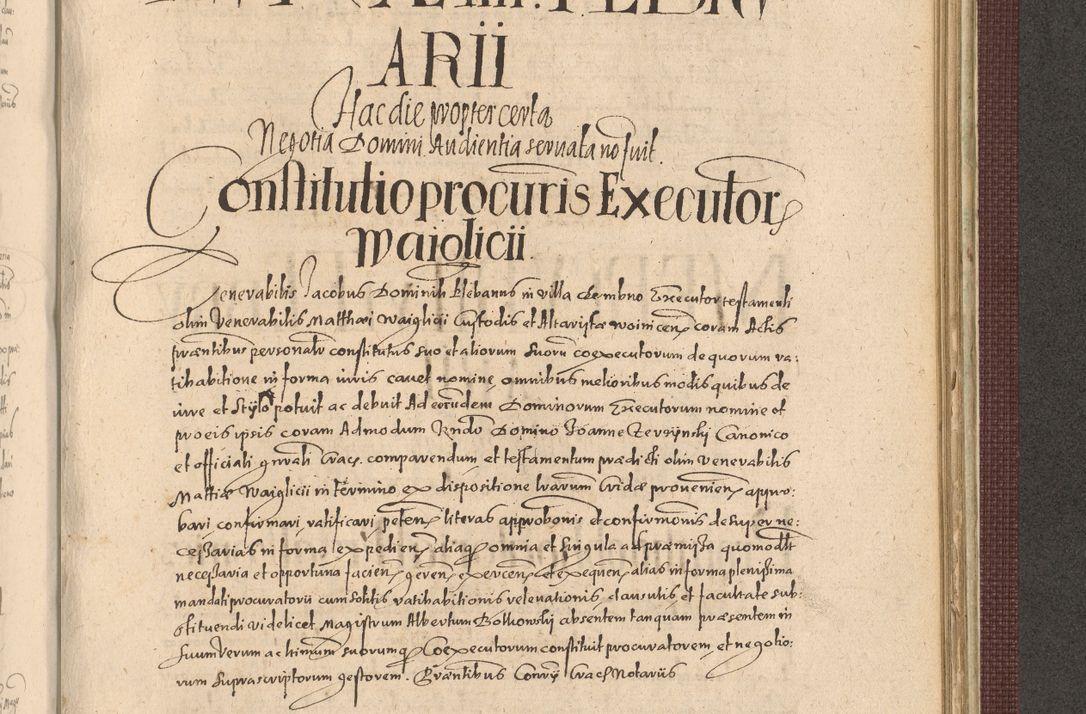 ARII
Hac die propter certa
Negotia Domini Audientia servata no fuit.
Constitutio procuris Executor
Waiglicii
Venerabilis Jacobus Dominik Plebanus in villa Executor testamenti
olim Venerabilis Matthæi Waiglicii Custodis et Altaristæ woinicen coram Actis
præntibus personalr constitutus suo et aliorum suorũ coexecutorum de quorum ra:
tihabitione in forma iuris cavet nomine, omnibus melioribus modis quibus de
iure et Stylo potuit ac debuit Ad eorundem Dominorum Executorum nomine et
pro eis ipsis coram Admodum Rndo Domino Joanne Canonico
et officiali gnrali Crac. comparendum et testamentum prædicti olim Venerabilis
Matthiæ Waiglicii in termino ex dispositione lrarum Cridæ provenien appro:
bari confirmari, ratificari, peten literas approbonis et confirmonis desuper ne:
cessarias in forma expedien aliaq omnia et singula ad præmissa quomodlt
necessaria et opportuna facien, geren, exercen et exequen alias in forma plenissima
mandati procuratorii cum solitis ratihabitionis relevationis, clausulis, et facultate sub:
stituendi videlicet Magistrum Albertum Bolkowskij absentem tanquam præsentem in
suum verum ac ltimum suorumq Coexecutorum constituit procuratorem, et negotio:
rum suprascriptorum gestorem. Præntibus Conry Crac Notariis